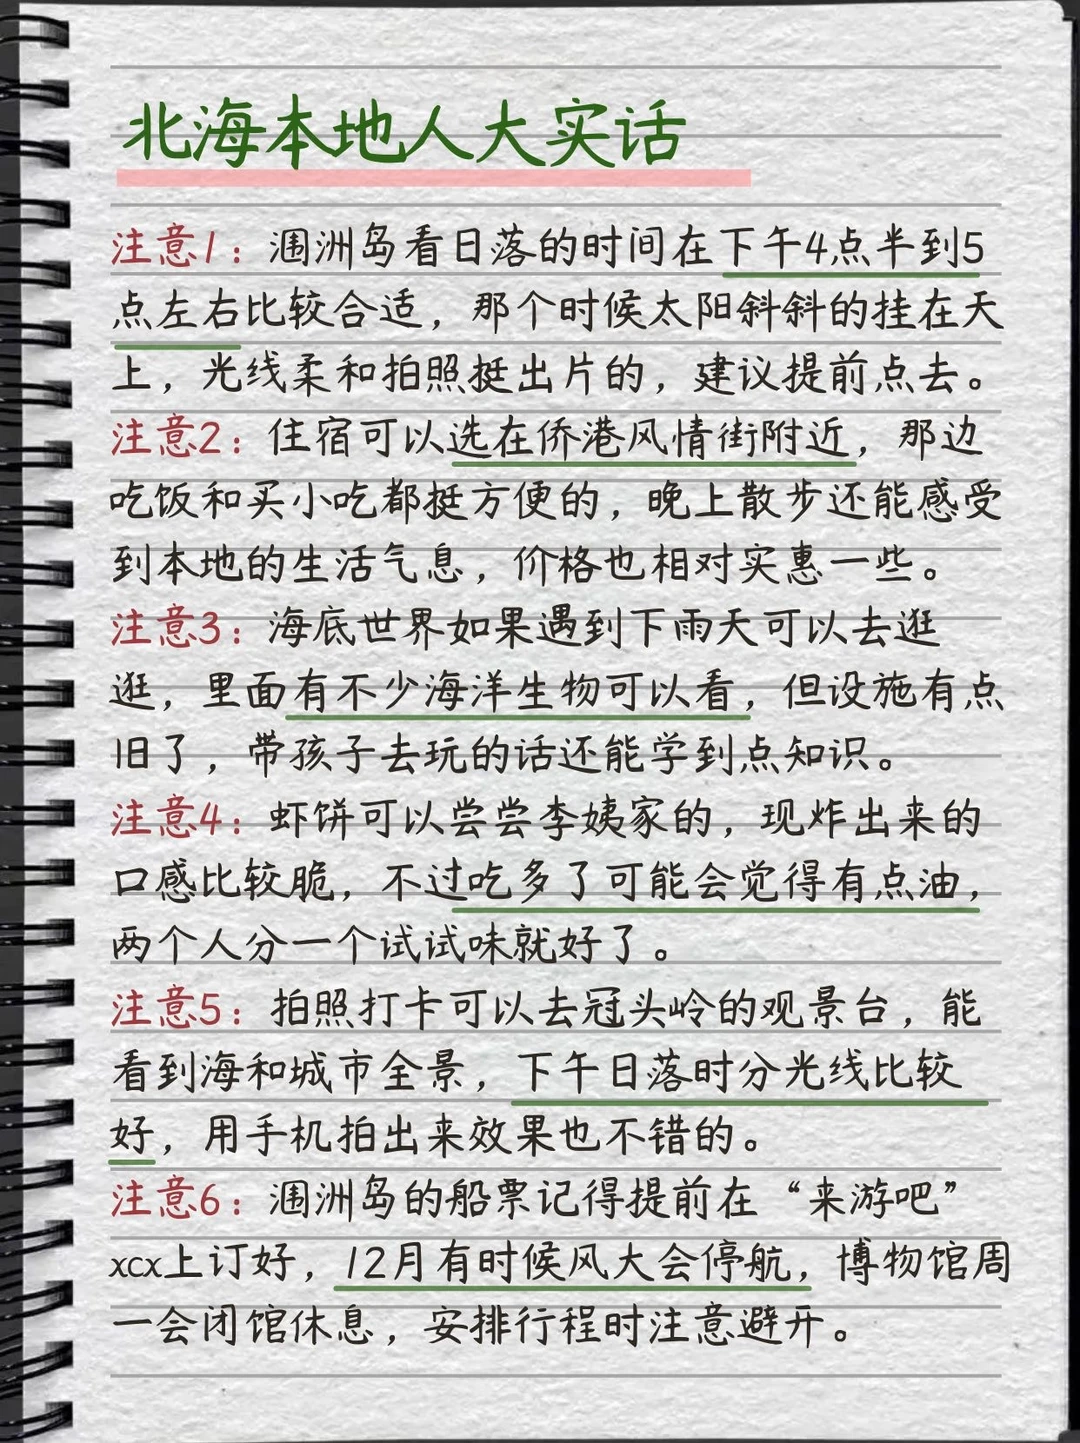 北海本地人大实话
注意1：涠洲岛看日落的时间在下午4点半到5
点左右比较合适，那个时候太阳斜斜的挂在天
上，光线柔和拍照挺出片的，建议提前点去。
注意2：住宿可以选在侨港风情街附近，那边
吃饭和买小吃都挺方便的，晚上散步还能感受
到本地的生活气息，价格也相对实惠一些。
注意3：海底世界如果遇到下雨天可以去逛
逛，里面有不少海洋生物可以看，但设施有点
旧了，带孩子去玩的话还能学到点知识。
注意4：虾饼可以尝尝李姨家的，现炸出来的
口感比较脆，不过吃多了可能会觉得有点油，
两个人分一个试试味就好了。
注意5：拍照打卡可以去冠头岭的观景台，能
看到海和城市全景，下午日落时分光线比较
好，用手机拍出来效果也不错的。
注意6：涠洲岛的船票记得提前在“来游吧”
xcx上订好，12月有时候风大会停航，博物馆周
一会闭馆休息，安排行程时注意避开。